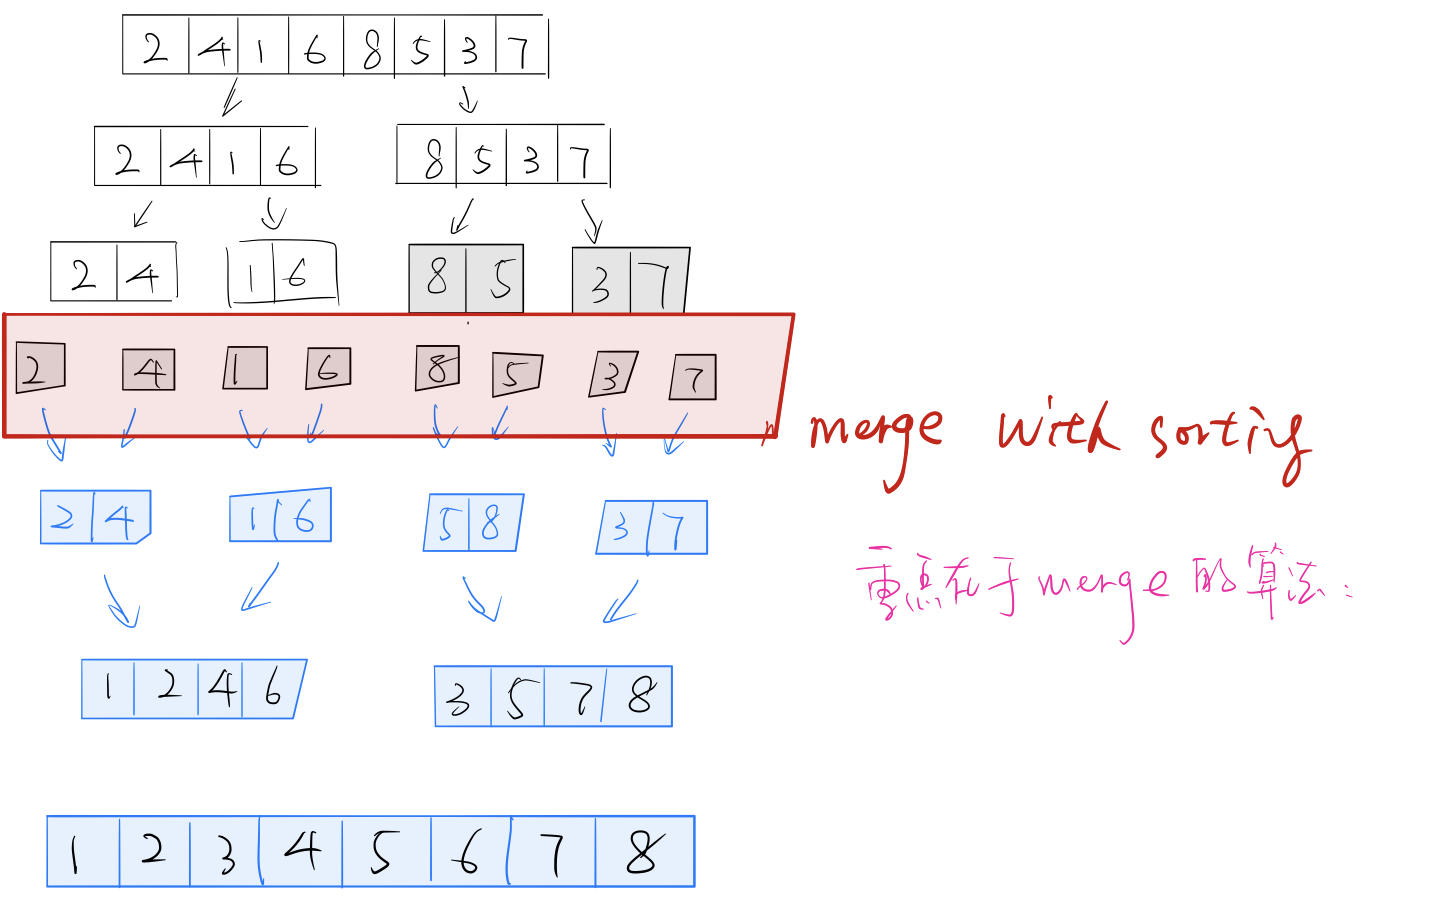 2 4 1 6 8 5 3 7
2 4 1 6 8 5 3 7
2 4 1 6 8 5 3 7
2 4 1 6 8 5 3 7
merge with sorting
2 4 1 6 5 8 3 7
重点在于merge的算法:
1 2 4 6 3 5 7 8
1 2 3 4 5 6 7 8